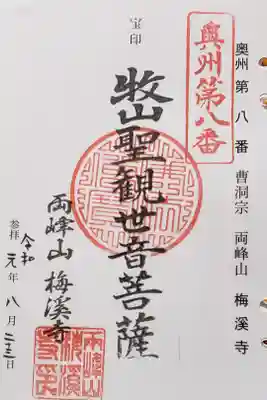 奥州 第八番 曹洞宗 両峰山 梅溪寺
奥州第八番
宝印
牧山聖観世音菩薩
両峰山 梅溪寺
参拝 令和元年八月二十三日